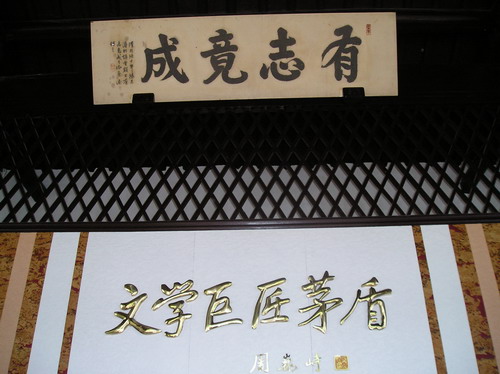 有志竟成
文学巨匠茅盾
周巍峙